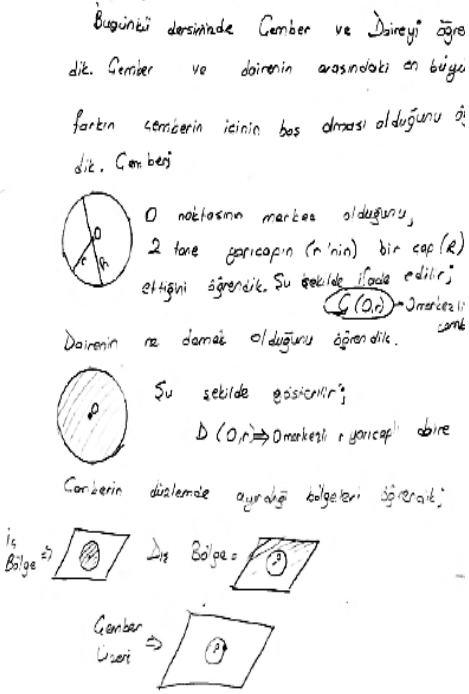 Bugünkü dersimizde Çember ve Daireyi öğre
dik. Çember ve dairenin arasındaki en büyü
farkın çemberin içinin boş olması olduğunu öğ
dik. Çemberi
O noktasının merkez olduğunu,
2 tane yarıçapın (r'nin) bir çap (R)
ettiğini öğrendik. Şu şekilde ifade edilir;
Ç(O,r) → O merkezli
çemb
O
r
Dairenin ne demek olduğunu öğrendik.
Şu şekilde gösterilir;
O
D (O,r) ⇒ O merkezli r yarıçaplı daire
Çemberin düzlemde ayırdığı bölgeleri öğrendik;
İç
Bölge ⇒
Dış Bölge =
Çember
Üzeri ⇒